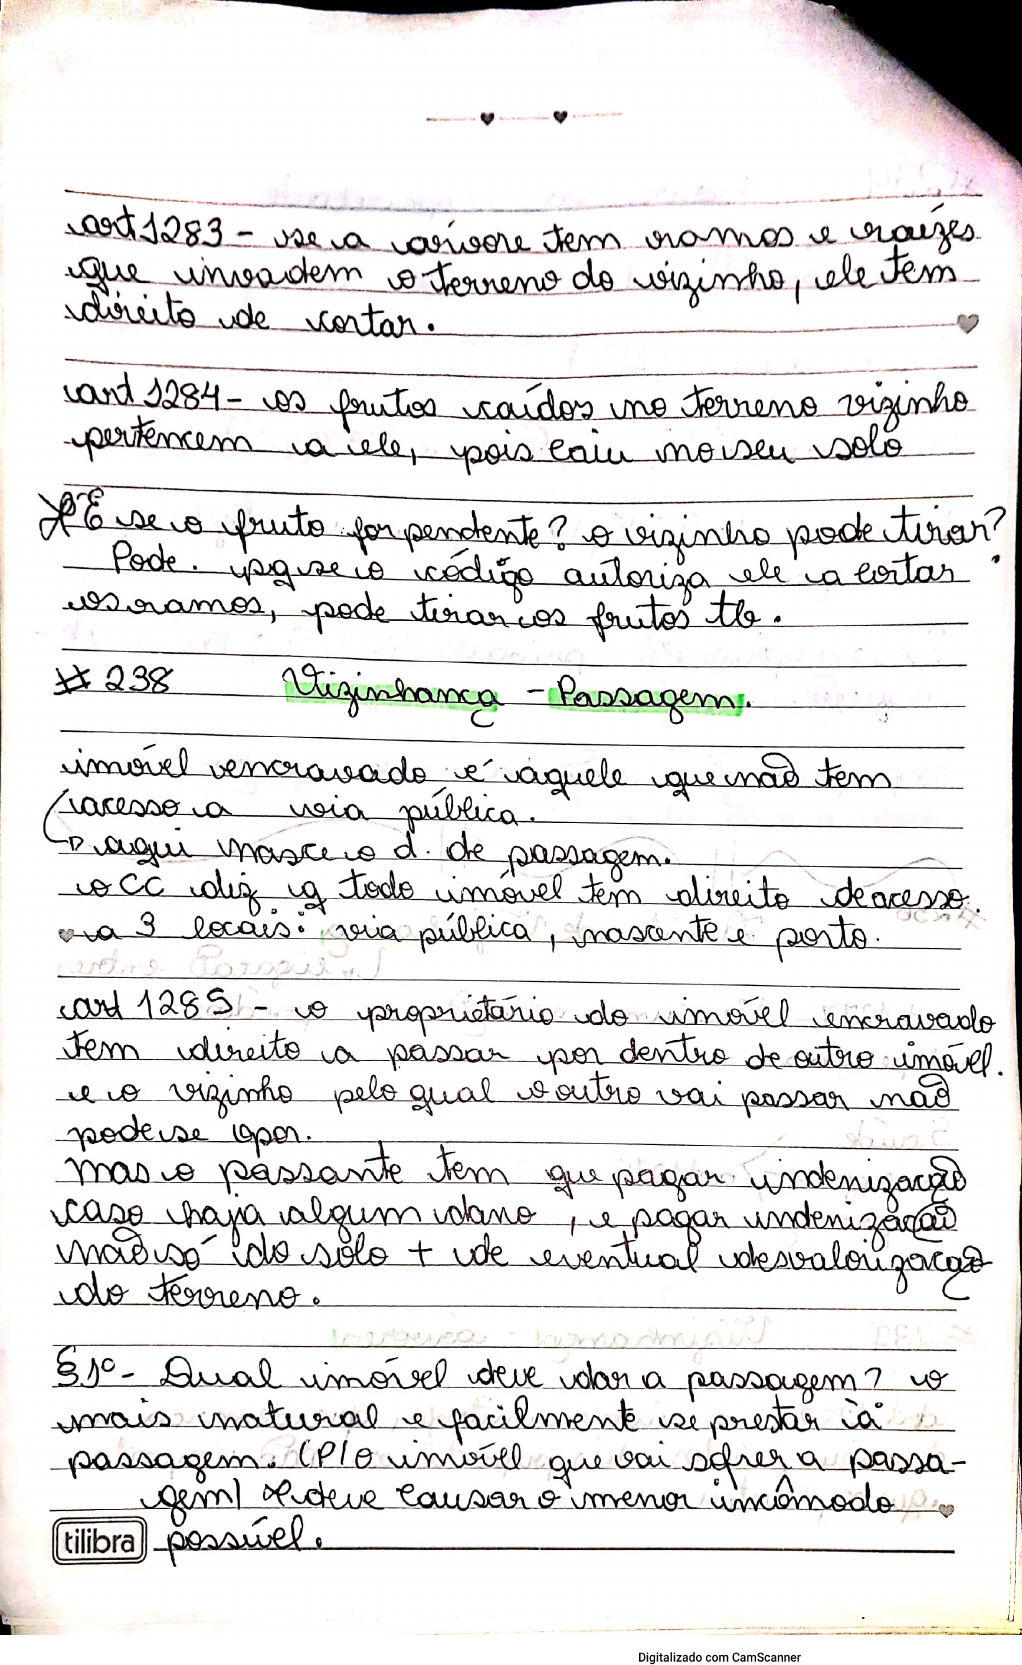 art 1283 - se a arvore tem ramos e raízes
que invadem o terreno do vizinho, ele tem
direito de cortar.
art 1284 - os frutos caídos no terreno vizinho
pertencem a ele, pois caiu no seu solo
* E se o fruto for pendente? o vizinho pode tirar?
Pode. pq se o código autoriza ele a cortar
os ramos, pode tirar os frutos tb.
# 238 Vizinhança - Passagem.
imóvel encravado é aquele que não tem
acesso a via pública.
aqui nasce o d. de passagem.
o CC diz q todo imóvel tem direito de acesso.
a 3 locais: via pública, nascente e porto.
art 1285 - o proprietário do imóvel encravado
tem direito a passar por dentro de outro imóvel.
e o vizinho pelo qual o outro vai passar não
pode se opor.
mas o passante tem que pagar indenização
caso haja algum dano, e pagar indenização
não só do solo + de eventual desvalorização
do terreno.
§1º - Qual imóvel deve dar a passagem? o
mais natural e facilmente se prestar à
passagem. (P/ o imóvel que vai sofrer a passa-
gem) deve causar o menor incômodo
tilibra possível.
Digitalizado com CamScanner